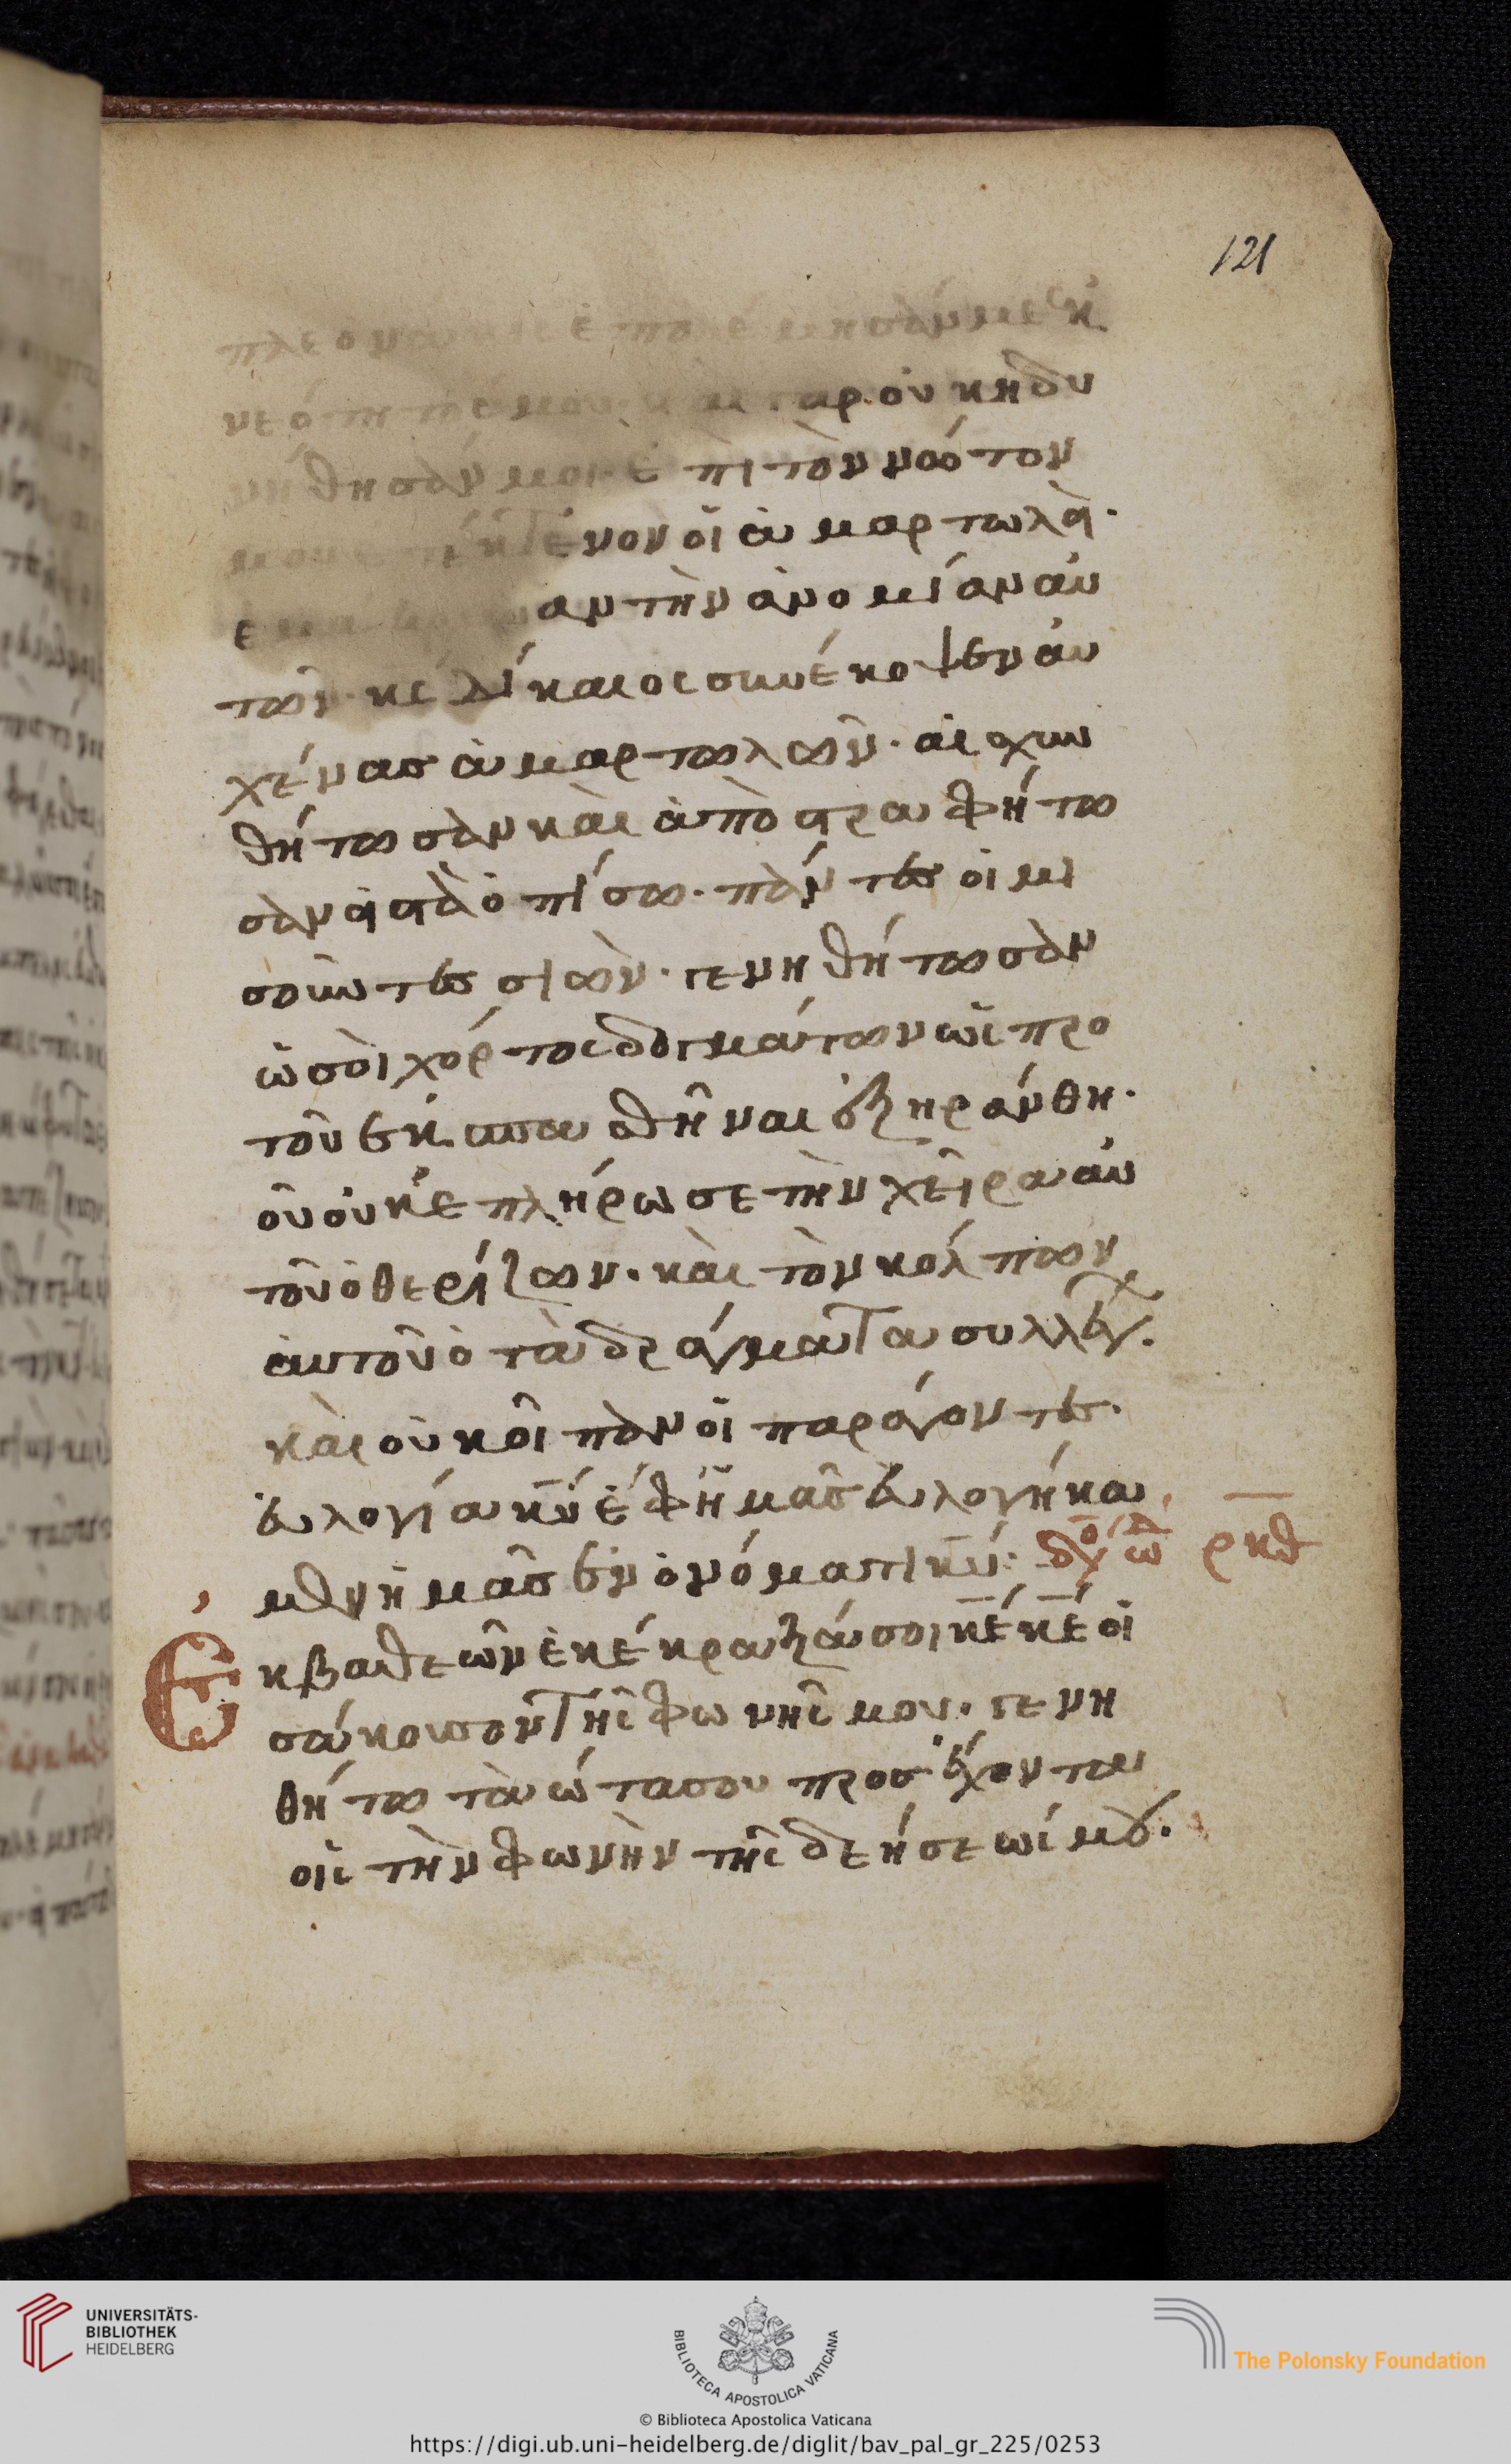 121
πλεονάκις ἐπολέμησάν με ἐκ
νεότητός μου· καὶ γὰρ οὐκ ἠδυ
νήθησάν μοι· ἐπὶ τὸν νῶτόν
μου ἐτέκτενον οἱ ἁμαρτωλοί·
ἐμάκρυναν τὴν ἀνομίαν αὐ
τῶν· κς δίκαιος συνέκοψεν αὐ
χένας ἁμαρτωλῶν· αἰσχυν
θήτωσαν καὶ ἀποστραφήτω
σαν εἰς τὰ ὀπίσω· πάντες οἱ μι
σοῦντες σιών· γενηθήτωσαν
ὡσεὶ χόρτος δομάτων ὡς πρὸ
τοῦ ἐκσπασθῆναι ἐξηράνθη·
οὗ οὐκ ἐπλήρωσε τὴν χεῖρα αὐ
τοῦ ὁ θερίζων· καὶ τὸν κόλπων
αὐτοῦ ὁ τὰ δράγματα συλλέγ·
καὶ οὐκ εἶπαν οἱ παράγοντες·
εὐλογία κυ ἐφ ἡμᾶς εὐλογήκα
μεν ἡμᾶς ἐν ὀνόματι κυ: ρκθ
Ἐκ βαθέων ἐκέκραξά σοι κε κε εἰ
σάκουσον τῆς φωνῆς μου· γενη
θήτω τὰ ὦτά σου προσέχοντα
εἰς τὴν φωνὴν τῆς δεήσεώς μου·
UNIVERSITÄTS-
BIBLIOTHEK
HEIDELBERG
BIBLIOTECA APOSTOLICA VATICANA
The Polonsky Foundation
© Biblioteca Apostolica Vaticana
https://digi.ub.uni-heidelberg.de/diglit/bav_pal_gr_225/0253